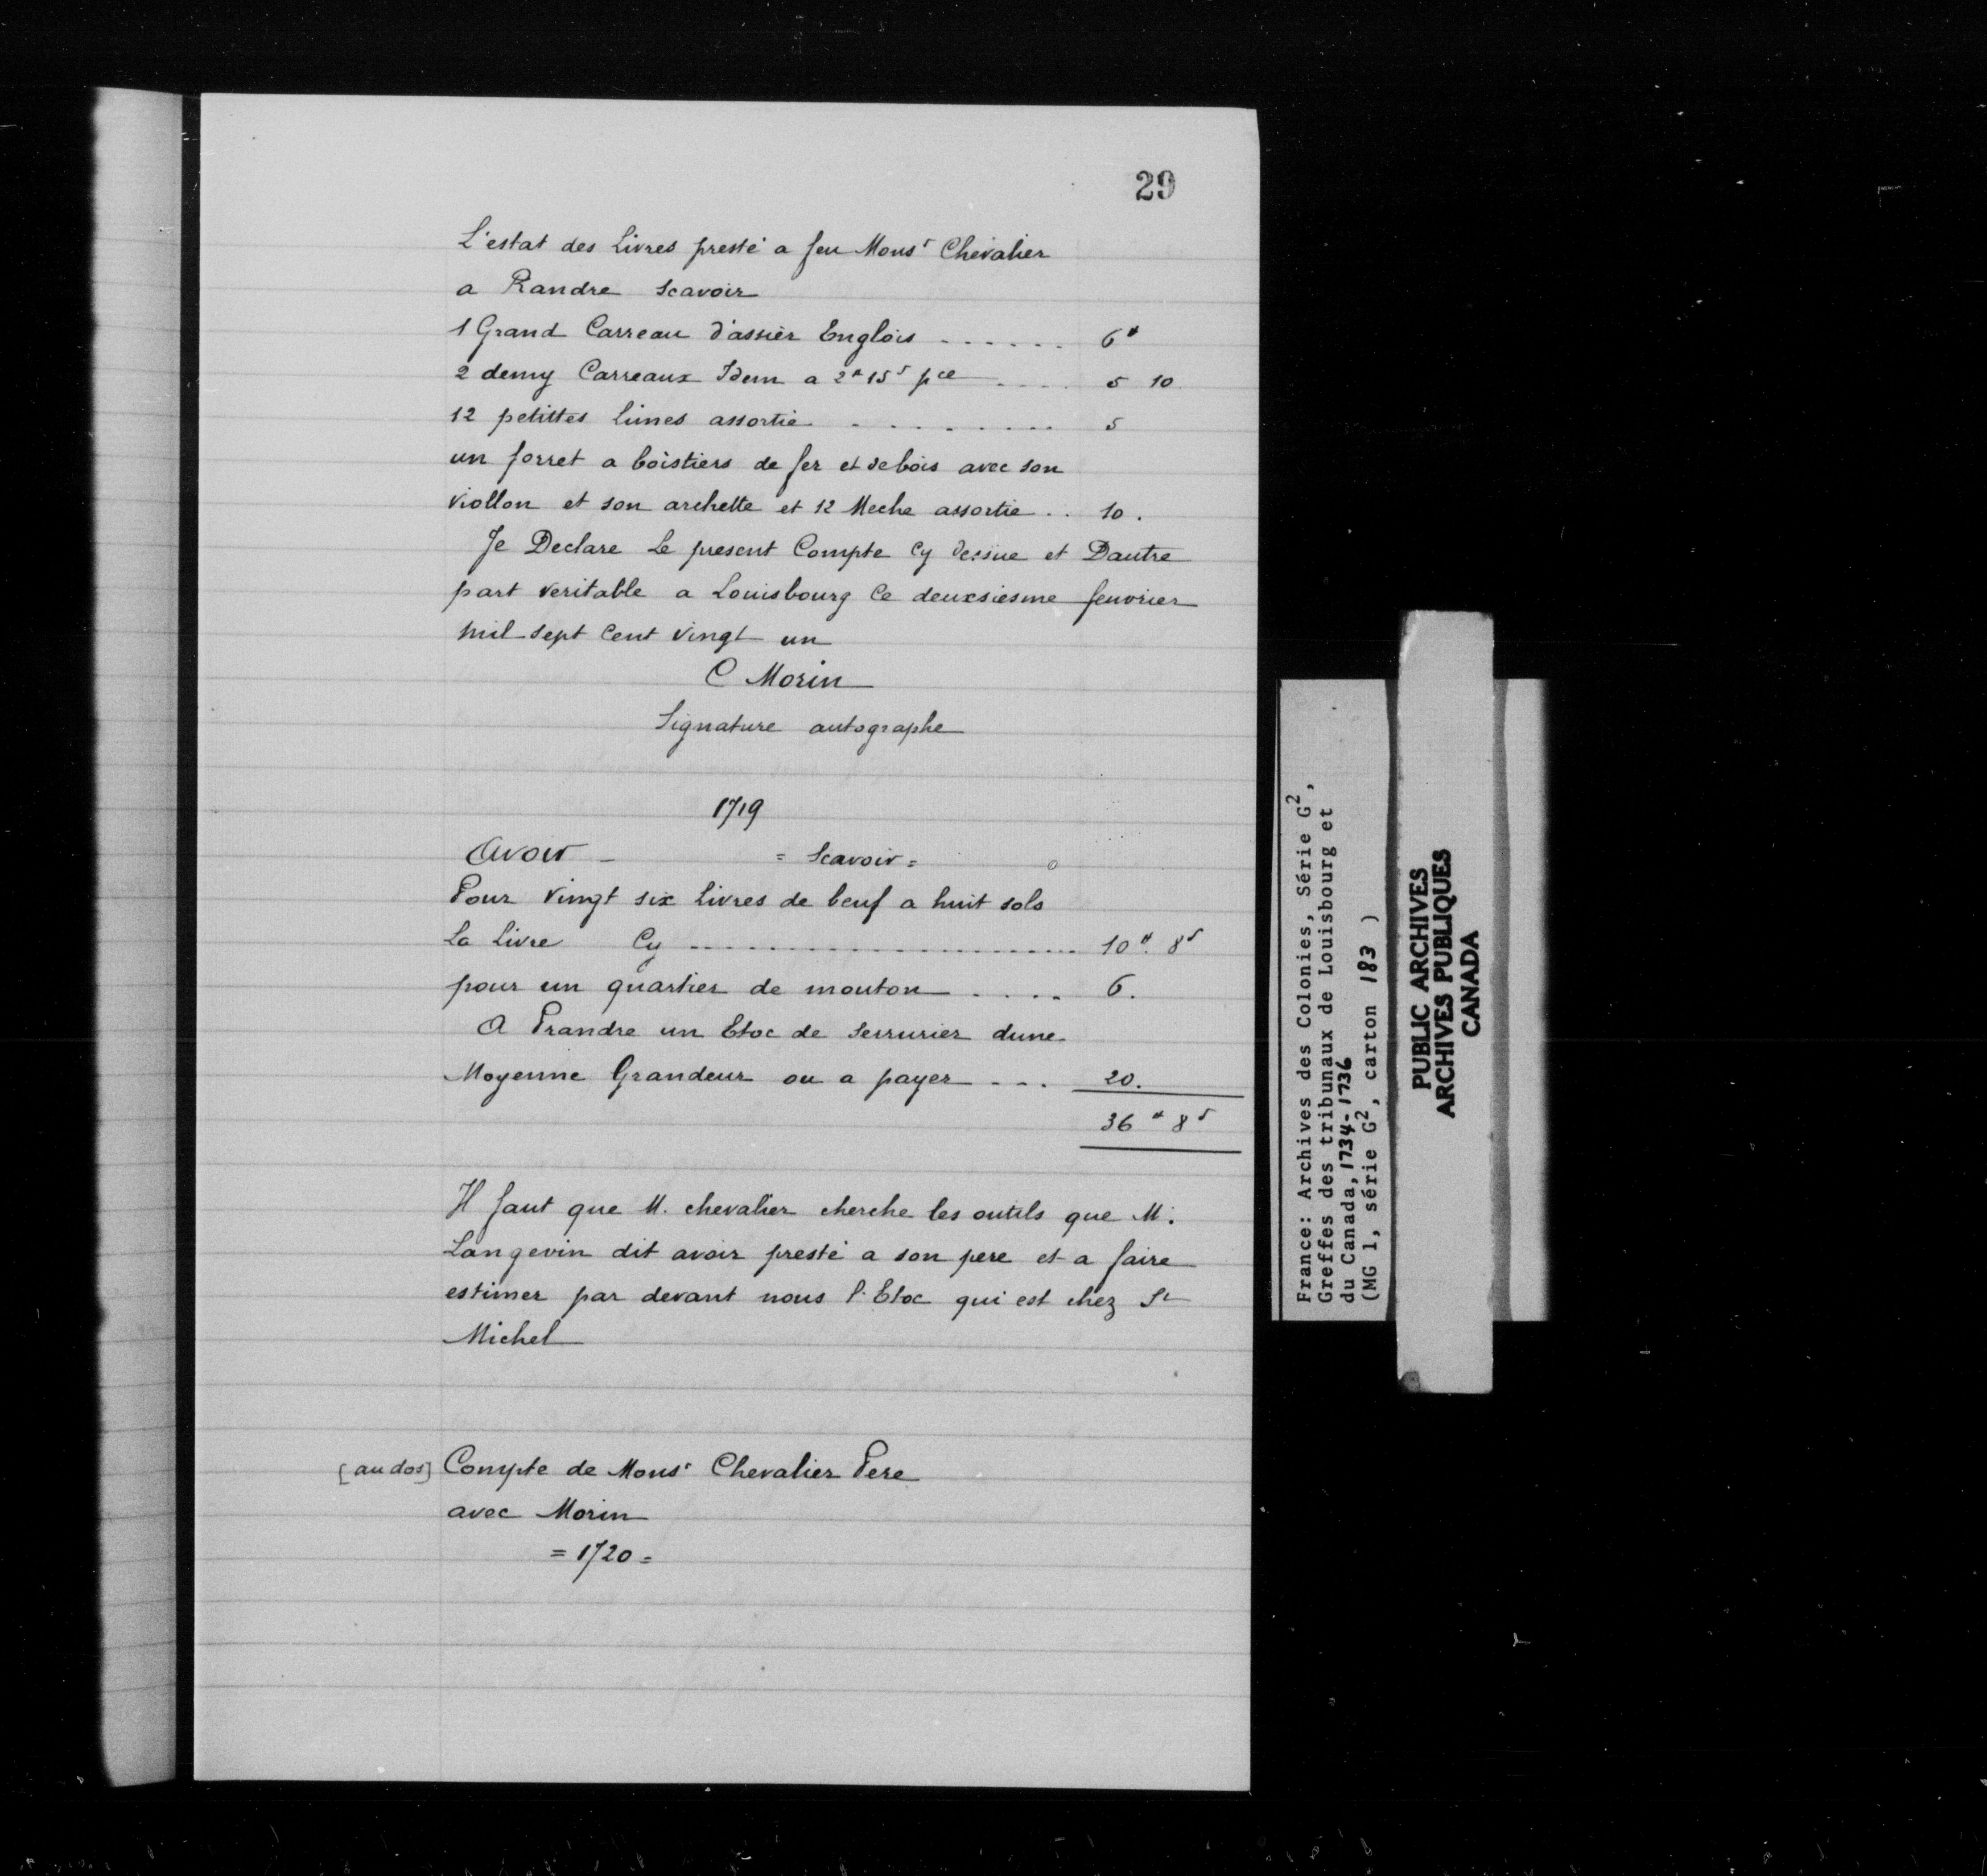 29
L'estat des Livres presté a feu Monsr Chevalier
a Randre scavoir
1 Grand Carreau d'assièr Englois ...... 6#
2 demy Carreaux Idem a 2# 15s pce .... 5 10
12 petittes limes assortie ......... 5
un forret a boistiers de fer et de bois avec son
viollon et son archette et 12 Meche assortie .. 10.
Je Declare Le present Compte Cy dessue et Dautre
part veritable a Louisbourg Ce deuxsiesme feuvrier
mil sept Cent vingt un
C Morin
Signature autographe
1719
Avoir _ = Scavoir =
Pour vingt six Livres de beuf a huit sols
La Livre Cy .......................... 10# 8s
pour un quartier de mouton .... 6.
A Prandre un Etoc de Serrurier dune
Moyenne Grandeur ou a payer ... 20.
36# 8s
Il faut que M. chevalier cherche les outils que M.
Langevin dit avoir presté a son pere et a faire
estimer par devant nous l'Etoc qui est chez St
Michel
[au dos] Compte de Monsr Chevalier Pere
avec Morin
= 1720 =
France: Archives des Colonies, Série G2,
Greffes des tribunaux de Louisbourg et
du Canada, 1734-1736
(MG 1, série G2, carton 183 )
PUBLIC ARCHIVES
ARCHIVES PUBLIQUES
CANADA